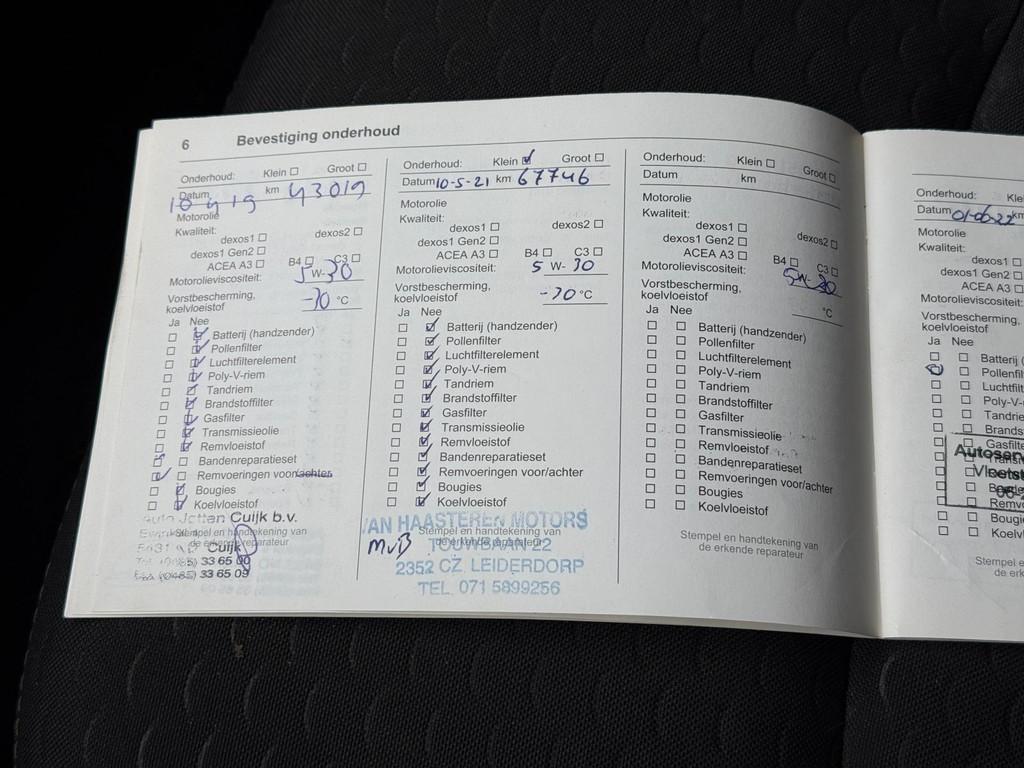 6 Bevestiging onderhoud
Onderhoud: Klein Groot
Datum km 43019
Motorolie
Kwaliteit:
dexos1 dexos2
dexos1 Gen2
ACEA A3 B4 C3
Motorolieviscositeit: 5W-30
Vorstbescherming,
koelvloeistof -30 °C
Ja Nee
Batterij (handzender)
Pollenfilter
Luchtfilterelement
Poly-V-riem
Tandriem
Brandstoffilter
Gasfilter
Transmissieolie
Remvloeistof
Bandenreparatieset
Remvoeringen voor/achter
Bougies
Koelvloeistof
Cuijk b.v.
Stempel en handtekening van
de erkende reparateur
Cuijk
33 65 09
Onderhoud: Klein Groot
Datum 10-5-21 km 67746
Motorolie
Kwaliteit:
dexos1 dexos2
dexos1 Gen2
ACEA A3 B4 C3
Motorolieviscositeit: 5 W-30
Vorstbescherming,
koelvloeistof -30 °C
Ja Nee
Batterij (handzender)
Pollenfilter
Luchtfilterelement
Poly-V-riem
Tandriem
Brandstoffilter
Gasfilter
Transmissieolie
Remvloeistof
Bandenreparatieset
Remvoeringen voor/achter
Bougies
Koelvloeistof
VAN HAASTEREN MOTORS
Stempel en handtekening van
de erkende reparateur
MvB TOUWBAAN 22
2352 CZ LEIDERDORP
TEL. 071 5899256
Onderhoud: Klein Groot
Datum km
Motorolie
Kwaliteit:
dexos1 dexos2
dexos1 Gen2
ACEA A3 B4 C3
Motorolieviscositeit: 5W-30
Vorstbescherming,
koelvloeistof °C
Ja Nee
Batterij (handzender)
Pollenfilter
Luchtfilterelement
Poly-V-riem
Tandriem
Brandstoffilter
Gasfilter
Transmissieolie
Remvloeistof
Bandenreparatieset
Remvoeringen voor/achter
Bougies
Koelvloeistof
Stempel en handtekening van
de erkende reparateur
Onderhoud: Kle
Datum 01-06-22 km
Motorolie
Kwaliteit:
dexos1
dexos1 Gen2
ACEA A3
Motorolieviscositeit:
Vorstbescherming,
koelvloeistof
Ja Nee
Batterij (
Pollenfil
Luchtfilt
Poly-V-
Tandrie
Brands
Gasfilte
Autoserv
Remvo
Bougi
Koelv
Stempel e
de erk